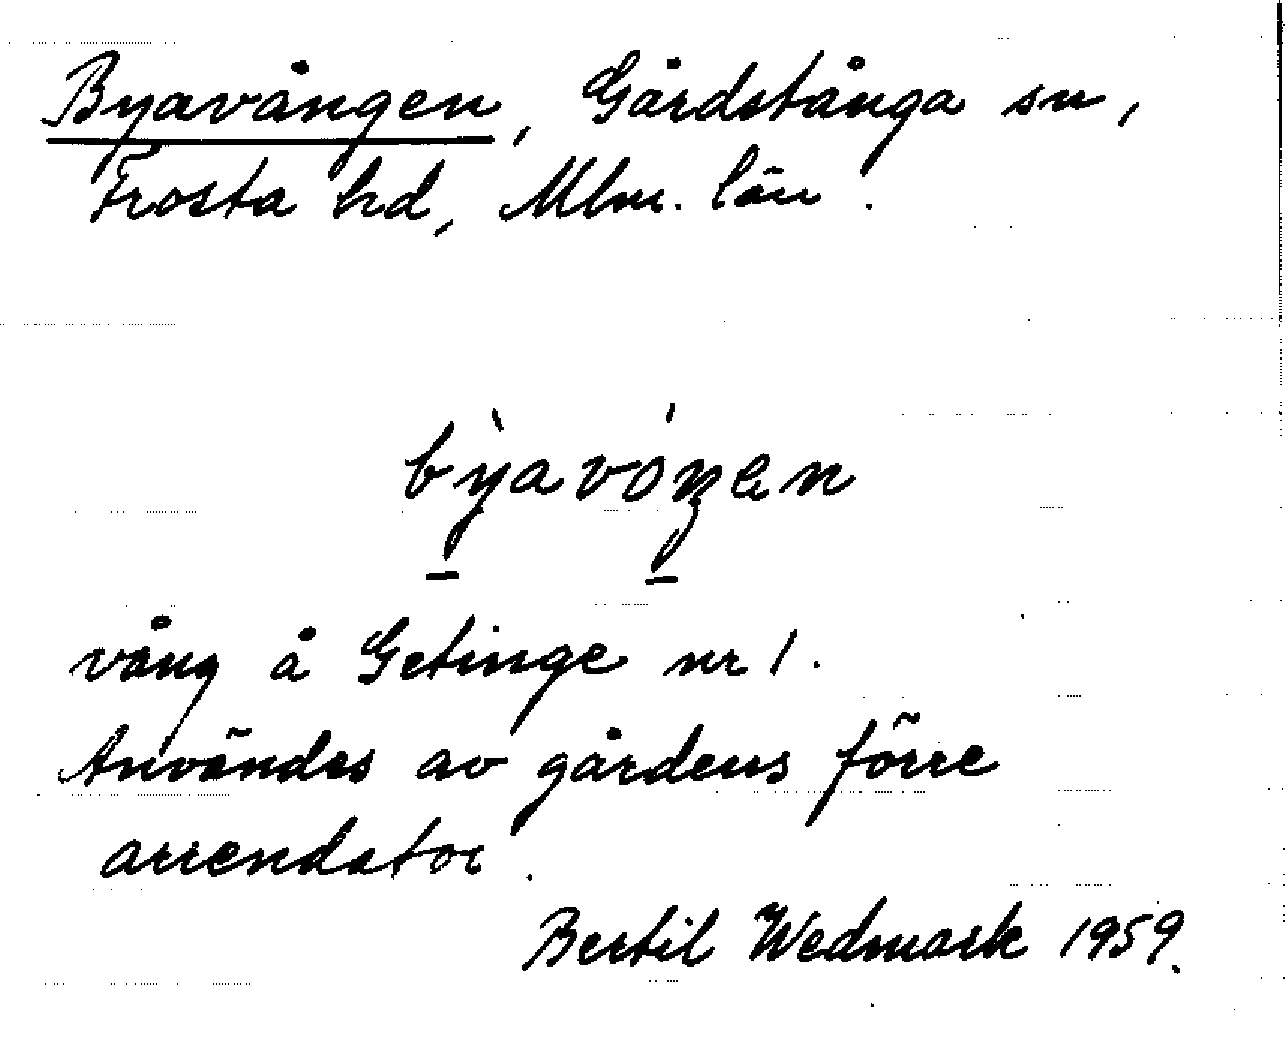 Byavången, Gårdstånga sn,
Frosta hd, Mlm. län.
bỳavóŋen
vång å Getinge nr 1.
Användes av gårdens förre
arrendator.
Bertil Wedmark 1959.